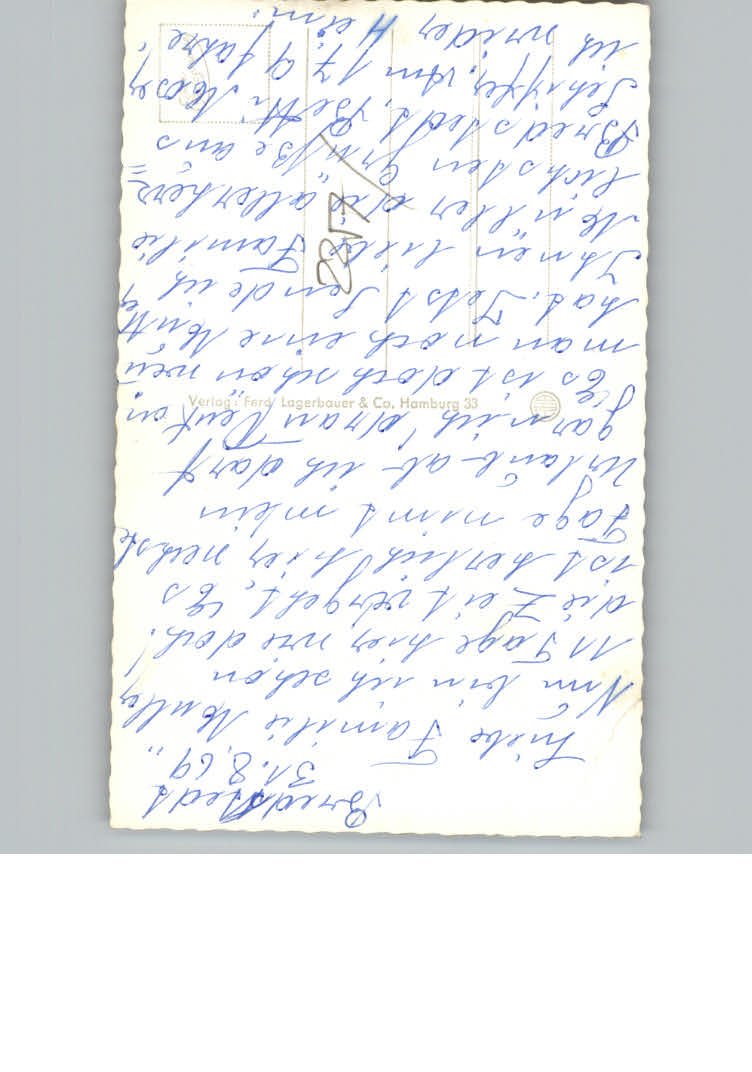 Bredstedt
31.8.69
Liebe Familie Müller,,
Nun bin ich schon
11 Tage hier wie doch!
die Zeit vergeht, Es
ist herlich hier nechste
Tage nimt mein
Urlaub ab ich darf
gar nich dran Denken
Es ist doch schön wen
man noch eine Mutter
hat. Jetst sende ich
Ihnen liebe Familie
Müller die allerherz=
lichsten Grüße aus
Bredstedt, Betti
Schiffer. Am 17 9 fahre
ich wieder Heim.
2257
Verlag: Ferd. Lagerbauer & Co. Hamburg 33